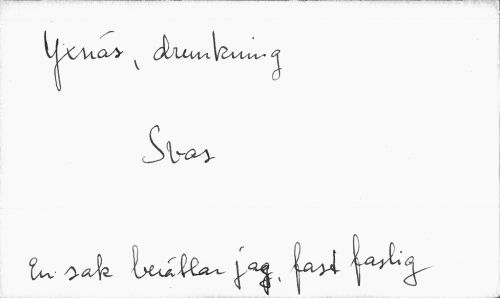 Yxnás, drunkning
Svar
En sak berättar jag, fast faslig